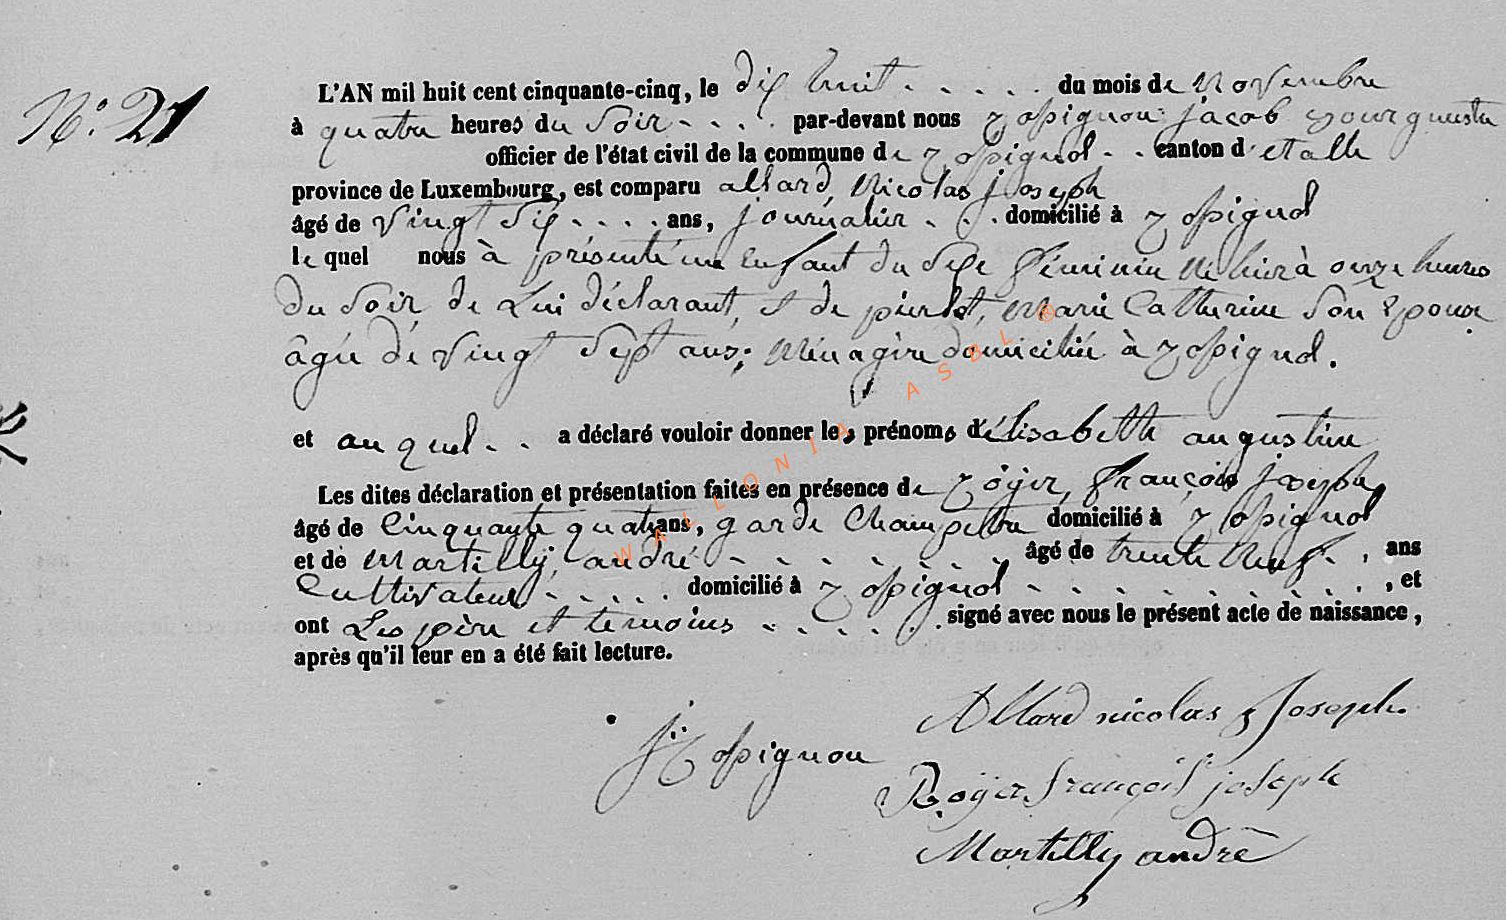 N° 21
L'AN mil huit cent cinquante-cinq, le dix huit . . . . . du mois de Novembre
à quatre heures du Soir . . . . par-devant nous rossignon jacob
officier de l'état civil de la commune de rossignol . . canton d'etalle
province de Luxembourg, est comparu allard, Nicolas joseph
âgé de vingt six . . . . ans, journalier . . . domicilié à rossignol
le quel nous à présenté un enfant du sexe féminin né hier à onze heures
du soir, de Lui déclarant, et de pierlot, Marie Catherine son Epouse
âgée de vingt sept ans; Ménagère domiciliée à rossignol.
et auquel . . a déclaré vouloir donner les prénoms d'élisabeth augustine
Les dites déclaration et présentation faites en présence de rögér, françois joseph,
âgé de Cinquante quatre ans, garde Champetre domicilié à rossignol
et de Martilly, andré . . . . . . . . âgé de trente neuf . . ans
Cultivateur . . . . . domicilié à rossignol . . . . . . . . . . , et
ont Les père et temoins . . . . . . signé avec nous le présent acte de naissance,
après qu'il leur en a été fait lecture.
Allard nicolas Joseph
J: rossignon
Rögér françois joseph
Martilly andrè
WALLONIA ASBL ©